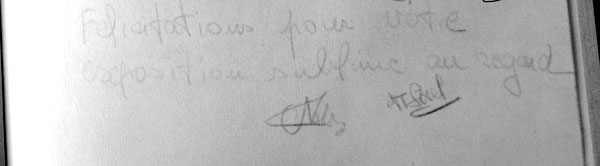 Felicitations pour votre
exposition sublime au regard